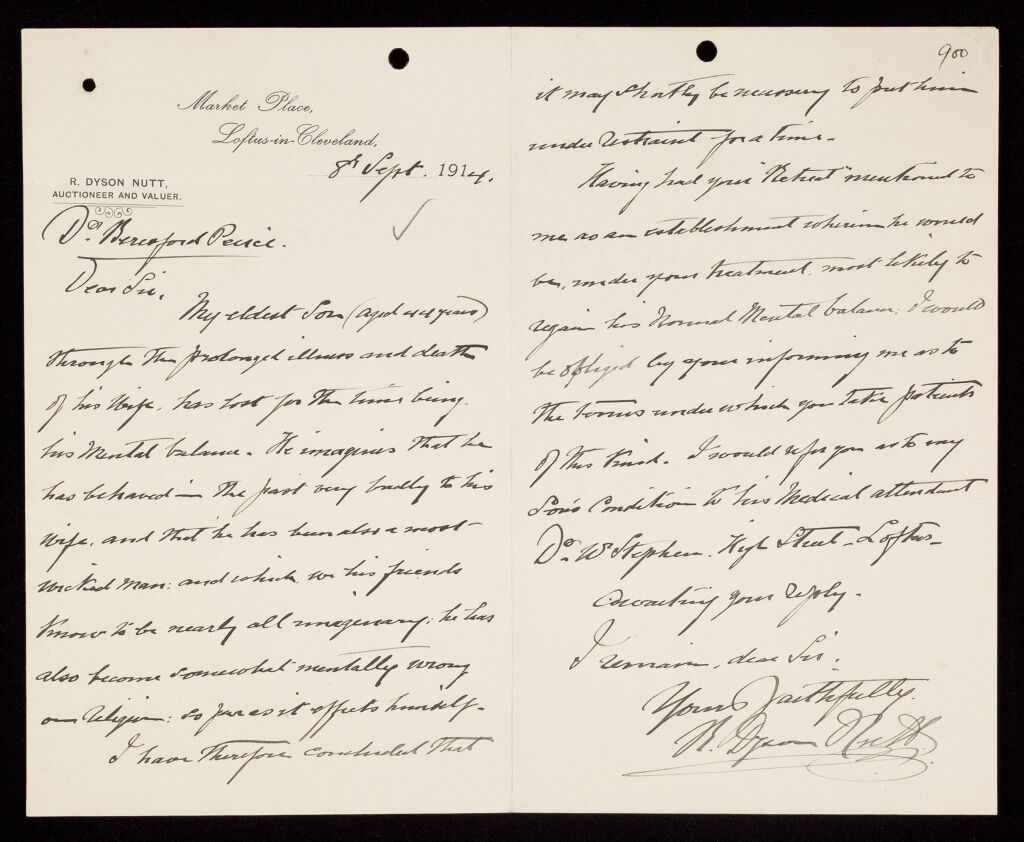 Market Place,
Loftus-in-Cleveland,
8th Sept. 1914.
R. DYSON NUTT,
AUCTIONEER AND VALUER.
Dr. Beresford Peirce.
Dear Sir,
My eldest Son (aged 44 years)
through the prolonged illness and death
of his Wife, has lost for the time being,
his Mental balance. He imagines that he
has behaved in the past very badly to his
Wife, and that he has been also a most
wicked man: and which, we his friends
Know to be nearly all imaginary; he has
also become somewhat mentally wrong
on religion: so far as it affects himself.
I have therefore concluded that
900
it may shortly be necessary to put him
under restraint for a time.
Having had your "Retreat" mentioned to
me as an establishment wherein he would
be, under your treatment, most likely to
regain his Normal Mental balance; I would
be obliged by your informing me as to
the terms under which you take patients
of this Kind. I would refer you as to my
Son's Condition to his Medical attendant
Dr. W Stephen, High Street, Loftus.
awaiting your reply.
I remain, dear Sir,
Yours faithfully,
R. Dyson Nutt.